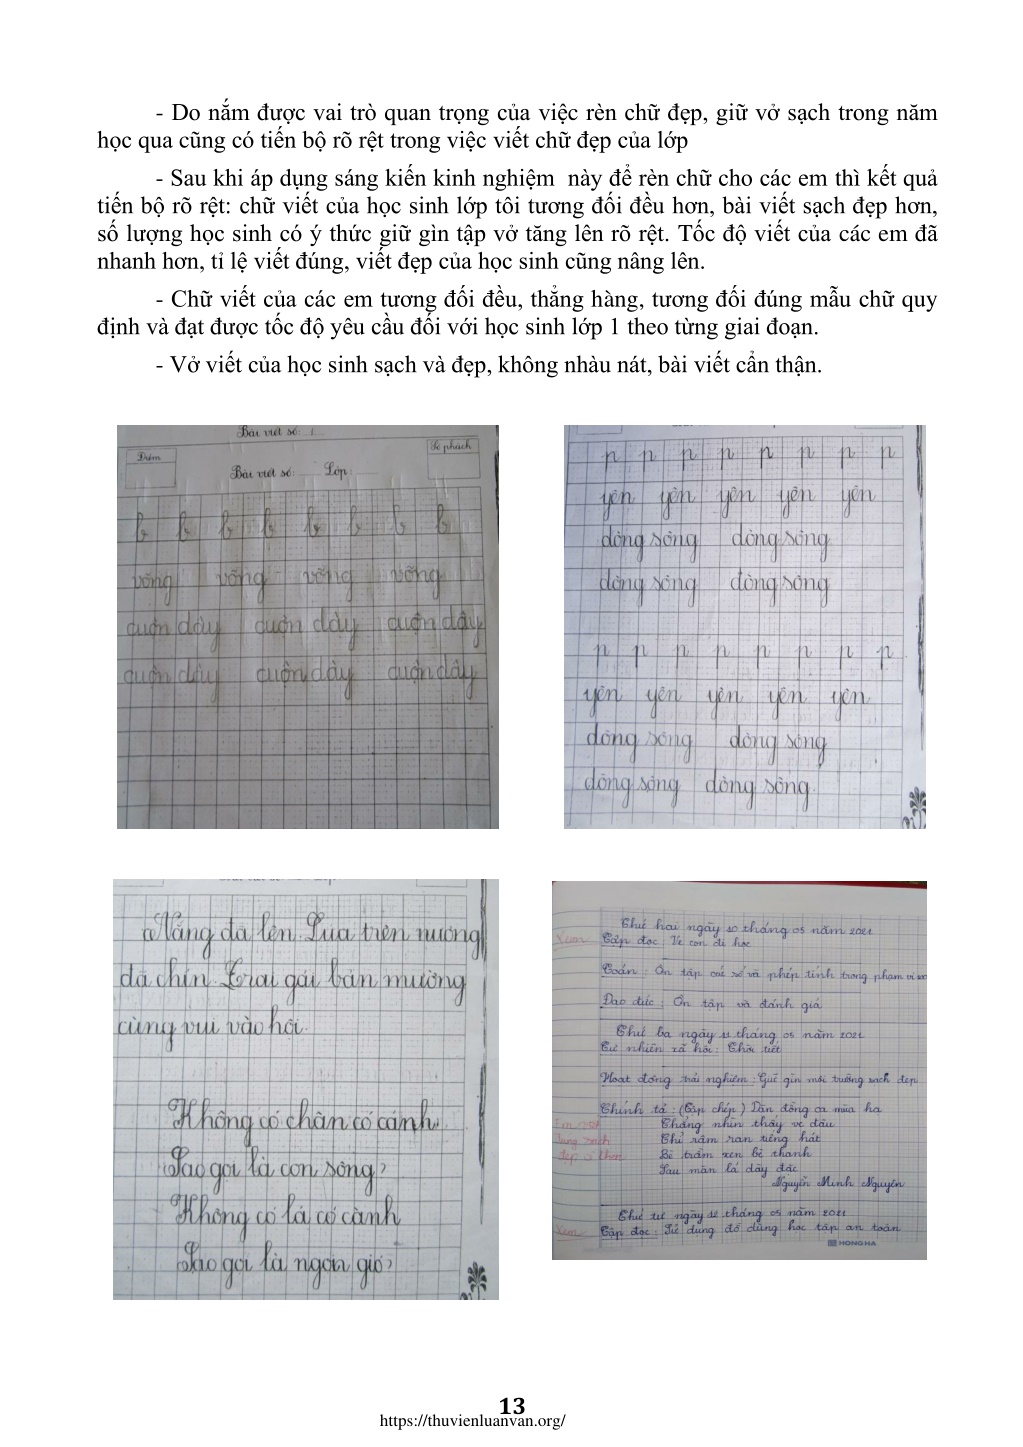 - Do nắm được vai trò quan trọng của việc rèn chữ đẹp, giữ vở sạch trong năm
học qua cũng có tiến bộ rõ rệt trong việc viết chữ đẹp của lớp
- Sau khi áp dụng sáng kiến kinh nghiệm này để rèn chữ cho các em thì kết quả
tiến bộ rõ rệt: chữ viết của học sinh lớp tôi tương đối đều hơn, bài viết sạch đẹp hơn,
số lượng học sinh có ý thức giữ gìn tập vở tăng lên rõ rệt. Tốc độ viết của các em đã
nhanh hơn, tỉ lệ viết đúng, viết đẹp của học sinh cũng nâng lên.
- Chữ viết của các em tương đối đều, thẳng hàng, tương đối đúng mẫu chữ quy
định và đạt được tốc độ yêu cầu đối với học sinh lớp 1 theo từng giai đoạn.
- Vở viết của học sinh sạch và đẹp, không nhàu nát, bài viết cẩn thận.
Bài viết số:
Điểm
Số phách
Bài viết số: Lớp:
b b b b b b b b
võng võng võng võng
cuộn dây cuộn dây cuộn dây
cuộn dây cuộn dây cuộn dây
p p p p p p p p
yên yên yên yên yên
dòng sông dòng sông
dòng sông dòng sông
p p p p p p p p
yên yên yên yên yên
dòng sông dòng sông
dòng sông dòng sông
Nắng đã lên. Lúa trên nương
đã chín. Trai gái bản mường
cùng vui vào hội.
Không có chân có cánh
Sao gọi là con sông?
Không có lá có cành
Sao gọi là ngọn gió?
Thứ hai ngày 10 tháng 05 năm 2021
Xem
Tập đọc: Ve con đi học
Toán: Ôn tập các số và phép tính trong phạm vi
Đạo đức: Ôn tập và đánh giá
Thứ ba ngày 11 tháng 05 năm 2021
Tự nhiên xã hội: Thời tiết
Hoạt động trải nghiệm: Giữ gìn môi trường sạch đẹp
Chính tả: (Tập chép) Dàn đồng ca mùa hạ
Chẳng nhìn thấy ve đâu
Chỉ râm ran tiếng hát
Bè trầm xen bè thanh
Sau màn lá dày đặc
Nguyễn Minh Nguyên
Thứ tư ngày 12 tháng 05 năm 2021
Xem
Tập đọc: Sử dụng đồ dùng học tập an toàn
HONG HA
13
https://thuvienluanvan.org/